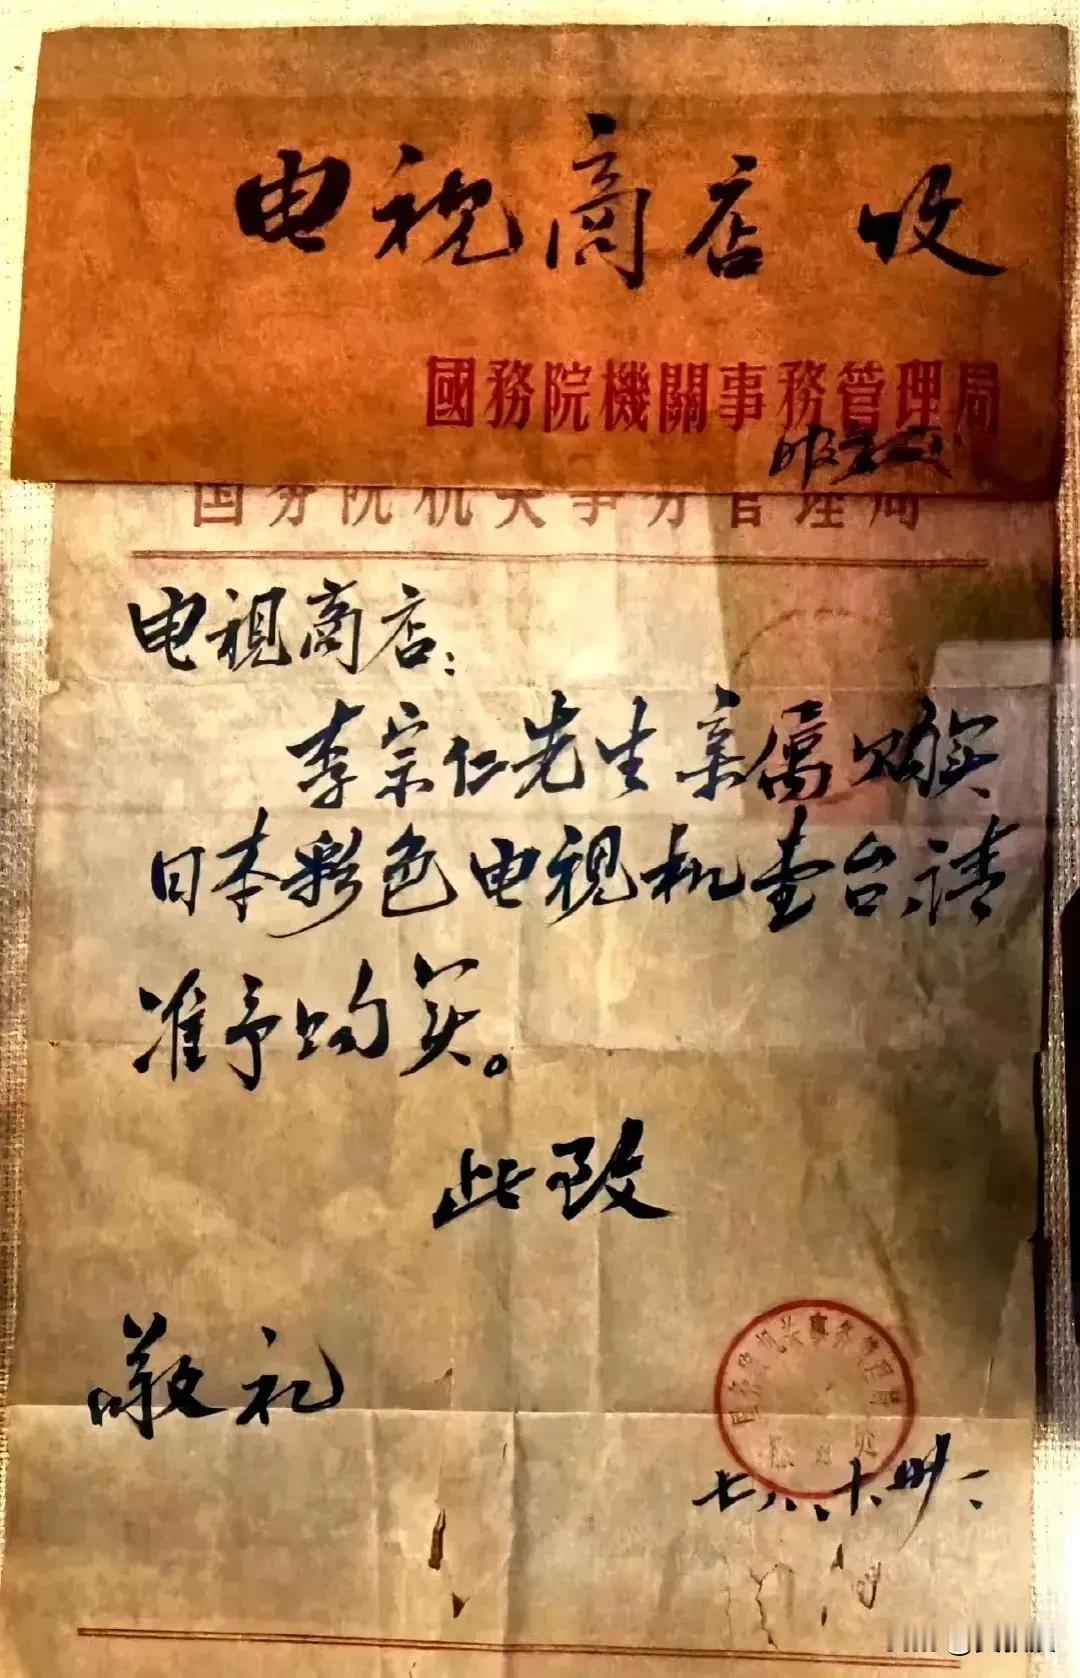 电视商店 收
國務院機關事務管理局
国务院机关事务管理局
电视商店：
李宗仁先生亲属购买
日本彩色电视机壹台,请
准予购买。
此致
敬礼
国务院机关事务管理局